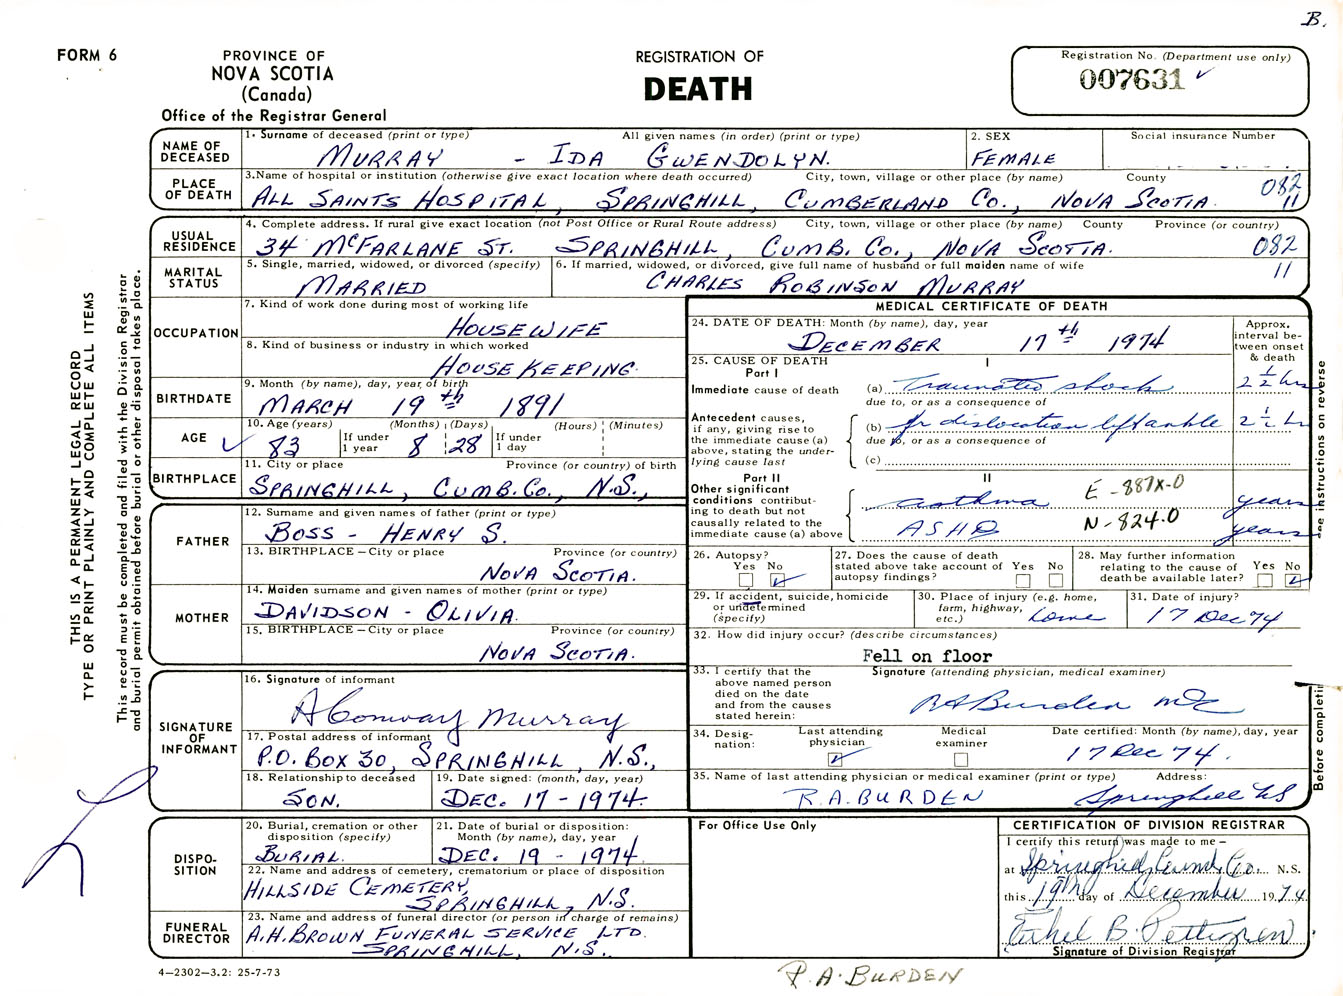 B.
FORM 6
PROVINCE OF
NOVA SCOTIA
(Canada)
Office of the Registrar General
REGISTRATION OF
DEATH
Registration No. (Department use only)
007631 ✓
THIS IS A PERMANENT LEGAL RECORD
TYPE OR PRINT PLAINLY AND COMPLETE ALL ITEMS
This record must be completed and filed with the Division Registrar
and burial permit obtained before burial or other disposal takes place.
NAME OF DECEASED
1. Surname of deceased (print or type) All given names (in order) (print or type)
MURRAY - IDA GWENDOLYN.
2. SEX
FEMALE
Social insurance Number
PLACE OF DEATH
3.Name of hospital or institution (otherwise give exact location where death occurred) City, town, village or other place (by name) County
ALL SAINTS HOSPITAL, SPRINGHILL, CUMBERLAND CO., NOVA SCOTIA.
082
11
USUAL RESIDENCE
4. Complete address. If rural give exact location (not Post Office or Rural Route address) City, town, village or other place (by name) County Province (or country)
34 McFARLANE ST. SPRINGHILL, CUMB. CO., NOVA SCOTIA.
082
11
MARITAL STATUS
5. Single, married, widowed, or divorced (specify)
MARRIED
6. If married, widowed, or divorced, give full name of husband or full maiden name of wife
CHARLES ROBINSON MURRAY
OCCUPATION
7. Kind of work done during most of working life
HOUSEWIFE
8. Kind of business or industry in which worked
HOUSE KEEPING.
BIRTHDATE
9. Month (by name), day, year of birth
MARCH 19th 1891
AGE ✓
10. Age (years) (Months) (Days) (Hours) (Minutes)
83 If under 1 year 8 28 If under 1 day
BIRTHPLACE
11. City or place Province (or country) of birth
SPRINGHILL, CUMB. CO., N.S.,
FATHER
12. Surname and given names of father (print or type)
BOSS - HENRY S.
13. BIRTHPLACE – City or place Province (or country)
NOVA SCOTIA.
MOTHER
14. Maiden surname and given names of mother (print or type)
DAVIDSON - OLIVIA.
15. BIRTHPLACE – City or place Province (or country)
NOVA SCOTIA.
SIGNATURE OF INFORMANT
16. Signature of informant
A Conway Murray
17. Postal address of informant
P.O. BOX 30, SPRINGHILL, N.S.,
18. Relationship to deceased
SON.
19. Date signed: (month, day, year)
DEC. 17 - 1974.
DISPOSITION
20. Burial, cremation or other disposition (specify)
BURIAL.
21. Date of burial or disposition: Month (by name), day, year
DEC. 19 - 1974.
22. Name and address of cemetery, crematorium or place of disposition
HILLSIDE CEMETERY,
SPRINGHILL, N.S.
FUNERAL DIRECTOR
23. Name and address of funeral director (or person in charge of remains)
A.H. BROWN FUNERAL SERVICE LTD.
SPRINGHILL, N.S.
4–2302–3.2: 25-7-73
MEDICAL CERTIFICATE OF DEATH
24. DATE OF DEATH: Month (by name), day, year
DECEMBER 17th 1974
Approx. interval between onset & death
25. CAUSE OF DEATH
Part I
I
Immediate cause of death
(a) Traumatic shock 2 1/2 hrs
due to, or as a consequence of
Antecedent causes, if any, giving rise to the immediate cause (a) above, stating the underlying cause last
(b) fr dislocation left ankle 2 1/2 hr
due to, or as a consequence of
(c)
Part II
II
Other significant conditions contributing to death but not causally related to the immediate cause (a) above
asthma years
ASHD years
E -887X-0
N-824.0
26. Autopsy?
Yes No ✓
27. Does the cause of death stated above take account of autopsy findings?
Yes No
28. May further information relating to the cause of death be available later?
Yes No ✓
29. If accident, suicide, homicide or undetermined (specify)
30. Place of injury (e.g. home, farm, highway, etc.)
home
31. Date of injury?
17 Dec 74
32. How did injury occur? (describe circumstances)
Fell on floor
33. I certify that the above named person died on the date and from the causes stated herein:
Signature (attending physician, medical examiner)
RABurden
34. Designation:
Last attending physician ✓
Medical examiner
Date certified: Month (by name), day, year
17 Dec 74.
35. Name of last attending physician or medical examiner (print or type) Address:
R.A. BURDEN Springhill NS
For Office Use Only
CERTIFICATION OF DIVISION REGISTRAR
I certify this return was made to me –
at Springhill, Cumb. Co. N.S.
this 19th day of December 1974
Ethel B. Pettigrew
Signature of Division Registrar
see instructions on reverse
Before completin
R.A. BURDEN